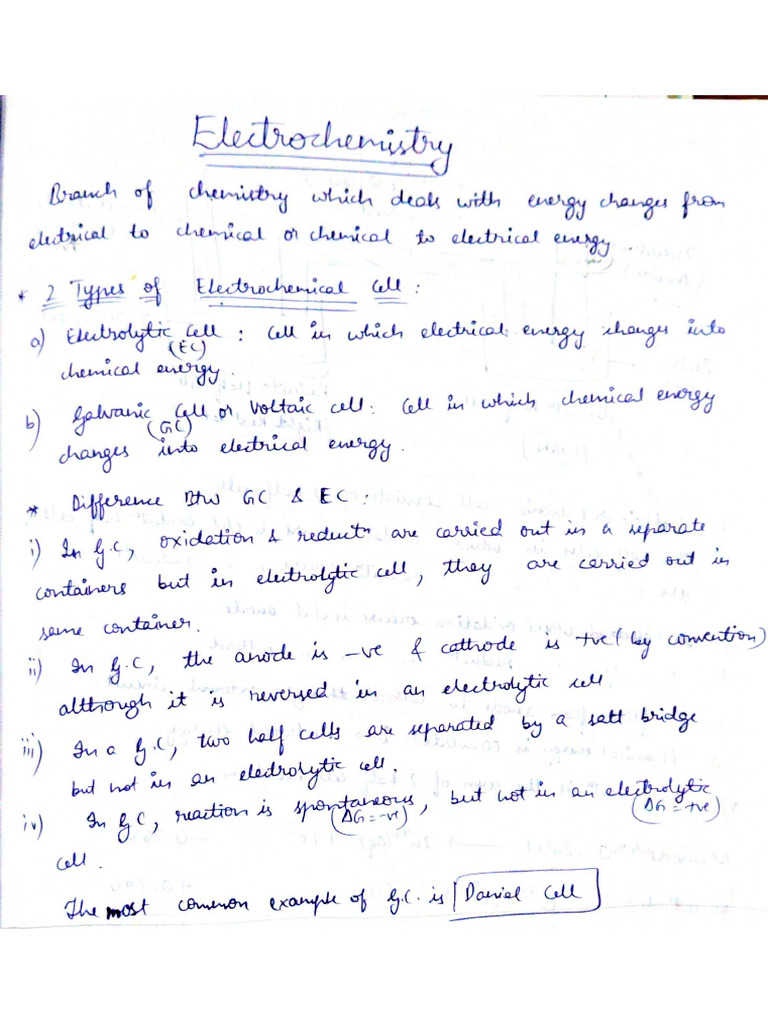 Electrochemistry
Branch of chemistry which deals with energy changes from
electrical to chemical or chemical to electrical energy.
* 2 Types of Electrochemical Cell :
a) Electrolytic Cell : Cell in which electrical energy changes into
(EC)
chemical energy.
b) Galvanic Cell or Voltaic cell : Cell in which chemical energy
(GC)
changes into electrical energy.
* Difference Btw GC & EC :
i) In G.C, oxidation & reductn are carried out in a separate
containers but in electrolytic cell, they are carried out in
same container.
ii) In G.C, the anode is -ve & cathode is +ve (by convention)
although it is reversed in an electrolytic cell.
iii) In a G.C, two half cells are separated by a salt bridge
but not in an electrolytic cell.
iv) In G.C, reaction is spontaneous, but not in an electrolytic
(ΔG = -ve) (ΔG = +ve)
cell.
The most common example of G.C. is Daniel Cell